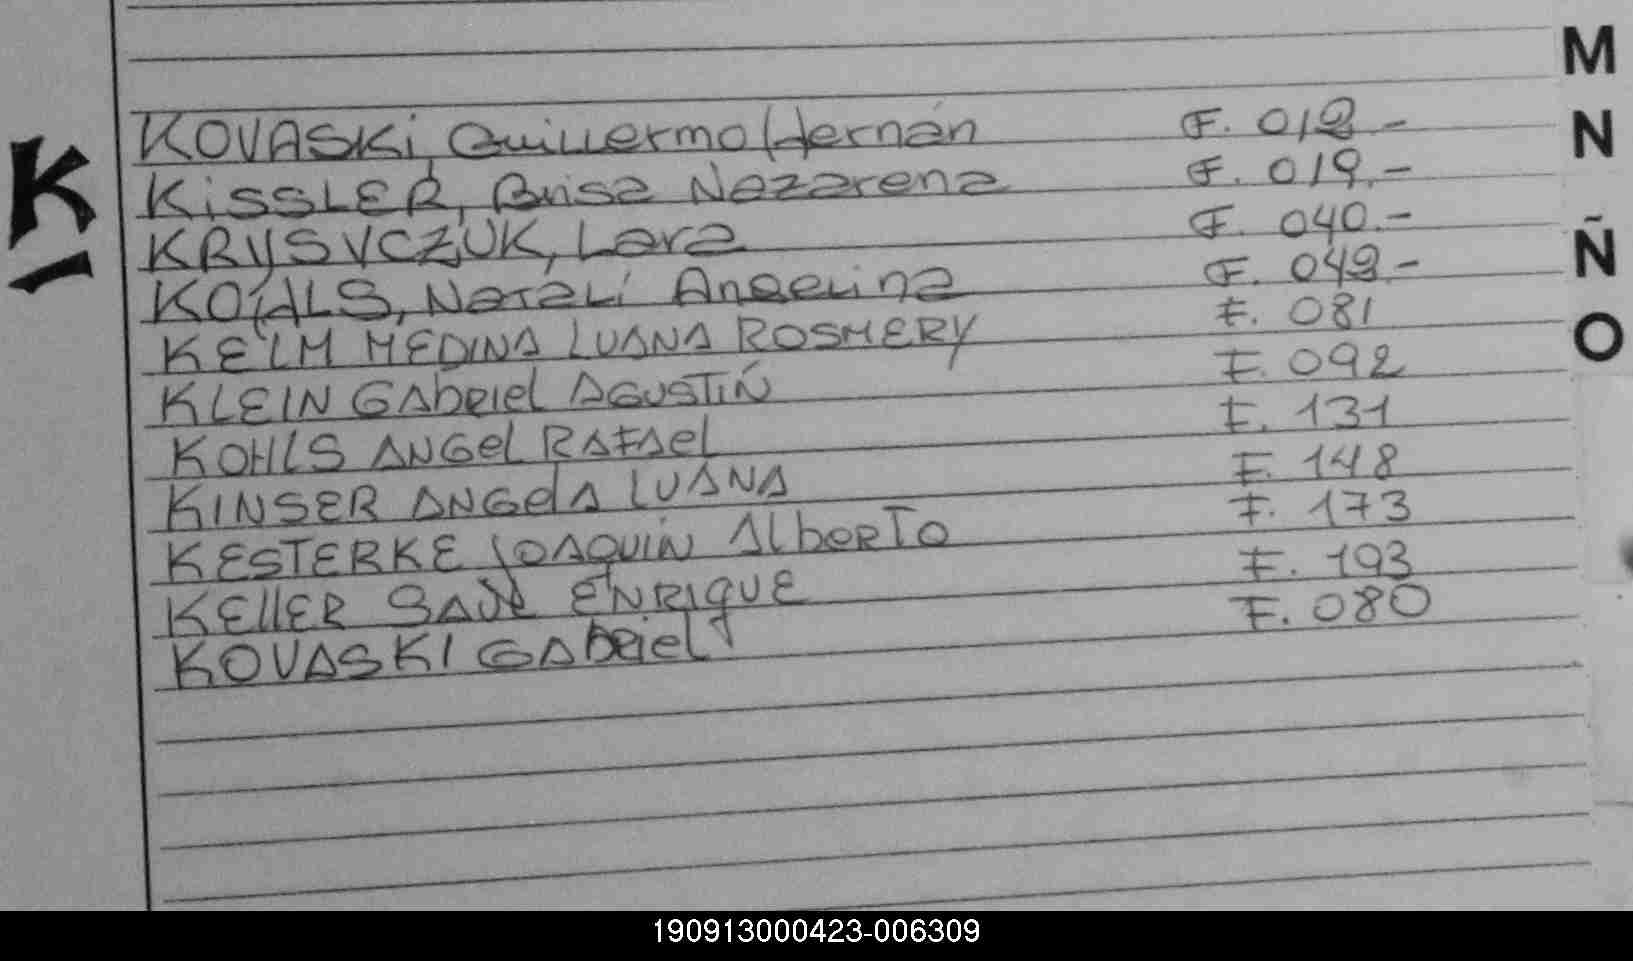 K
KOVASKi, Guillermo Hernán F. 012.-
KiSSLER, Brisa Nazarena F. 019.-
KRYSVCZUK, Lara F. 040.-
KOHLS, Natali Angelina F. 042.-
KELM MEDINA LUANA ROSMERY F. 081
KLEIN GAbRIEL AGUSTIN F. 092
KOHLS ANGEL RAFAEL F. 131
KINSER ANGELA LUANA F. 148
KESTERKE JOAQUIN AlbERTO F. 173
KELLER SAUL ENRIQUE F. 193
KOVASKI GAbRIEL F. 080
M
N
Ñ
O
190913000423-006309